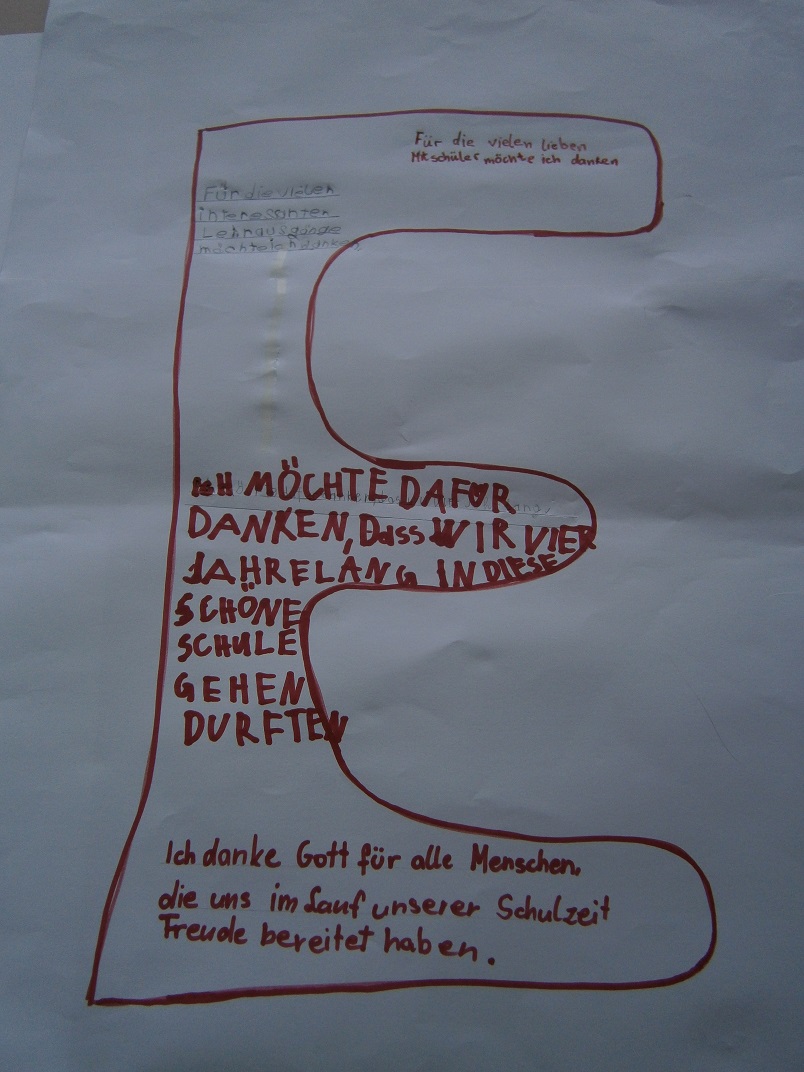 Für die vielen lieben
Mitschüler möchte ich danken
Für die vielen
interessanten
Lehrausgänge
möchte ich danken
ICH MÖCHTE DAFÜR
DANKEN, DASS WIR VIER
JAHRE LANG IN DIESE
SCHÖNE
SCHULE
GEHEN
DURFTEN
Ich danke Gott für alle Menschen,
die uns im Lauf unserer Schulzeit
Freude bereitet haben.